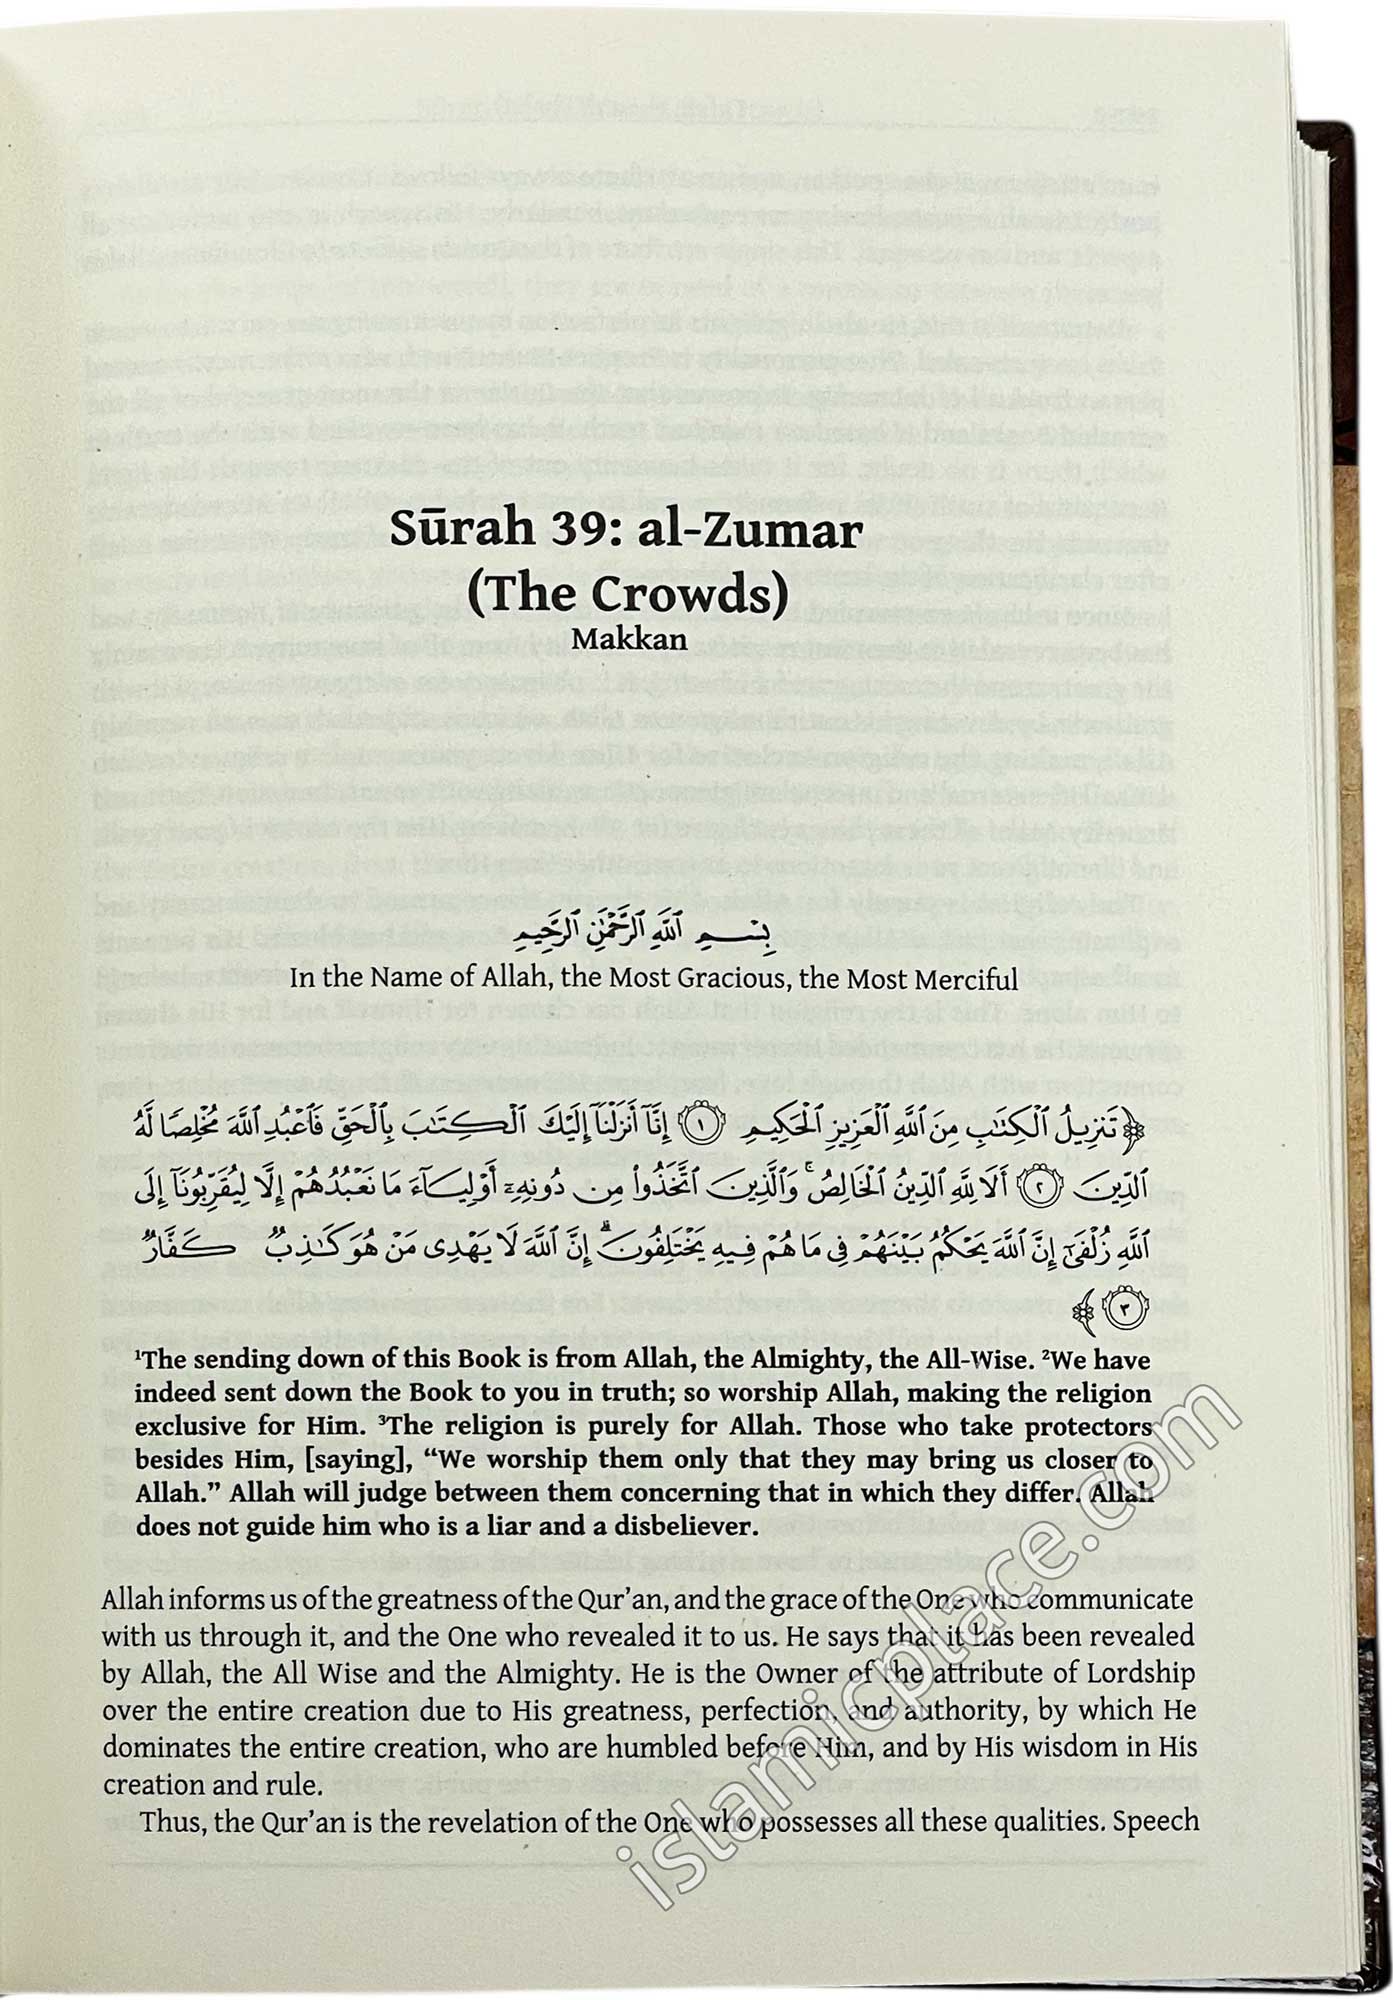 Sūrah 39: al-Zumar
(The Crowds)
Makkan
بِسْمِ ٱللَّهِ ٱلرَّحْمَٰنِ ٱلرَّحِيمِ
In the Name of Allah, the Most Gracious, the Most Merciful
﴿تَنزِيلُ ٱلْكِتَٰبِ مِنَ ٱللَّهِ ٱلْعَزِيزِ ٱلْحَكِيمِ ۝١ إِنَّآ أَنزَلْنَآ إِلَيْكَ ٱلْكِتَٰبَ بِٱلْحَقِّ فَٱعْبُدِ ٱللَّهَ مُخْلِصًا لَّهُ
ٱلدِّينَ ۝٢ أَلَا لِلَّهِ ٱلدِّينُ ٱلْخَالِصُ ۚ وَٱلَّذِينَ ٱتَّخَذُوا۟ مِن دُونِهِۦٓ أَوْلِيَآءَ مَا نَعْبُدُهُمْ إِلَّا لِيُقَرِّبُونَآ إِلَى
ٱللَّهِ زُلْفَىٰٓ إِنَّ ٱللَّهَ يَحْكُمُ بَيْنَهُمْ فِى مَا هُمْ فِيهِ يَخْتَلِفُونَ ۗ إِنَّ ٱللَّهَ لَا يَهْدِى مَنْ هُوَ كَٰذِبٌ كَفَّارٌ
۝٣﴾
¹The sending down of this Book is from Allah, the Almighty, the All-Wise. ²We have
indeed sent down the Book to you in truth; so worship Allah, making the religion
exclusive for Him. ³The religion is purely for Allah. Those who take protectors
besides Him, [saying], “We worship them only that they may bring us closer to
Allah.” Allah will judge between them concerning that in which they differ. Allah
does not guide him who is a liar and a disbeliever.
Allah informs us of the greatness of the Qur’an, and the grace of the One who communicate
with us through it, and the One who revealed it to us. He says that it has been revealed
by Allah, the All Wise and the Almighty. He is the Owner of the attribute of Lordship
over the entire creation due to His greatness, perfection, and authority, by which He
dominates the entire creation, who are humbled before Him, and by His wisdom in His
creation and rule.
Thus, the Qur’an is the revelation of the One who possesses all these qualities. Speech
islamicplace.com